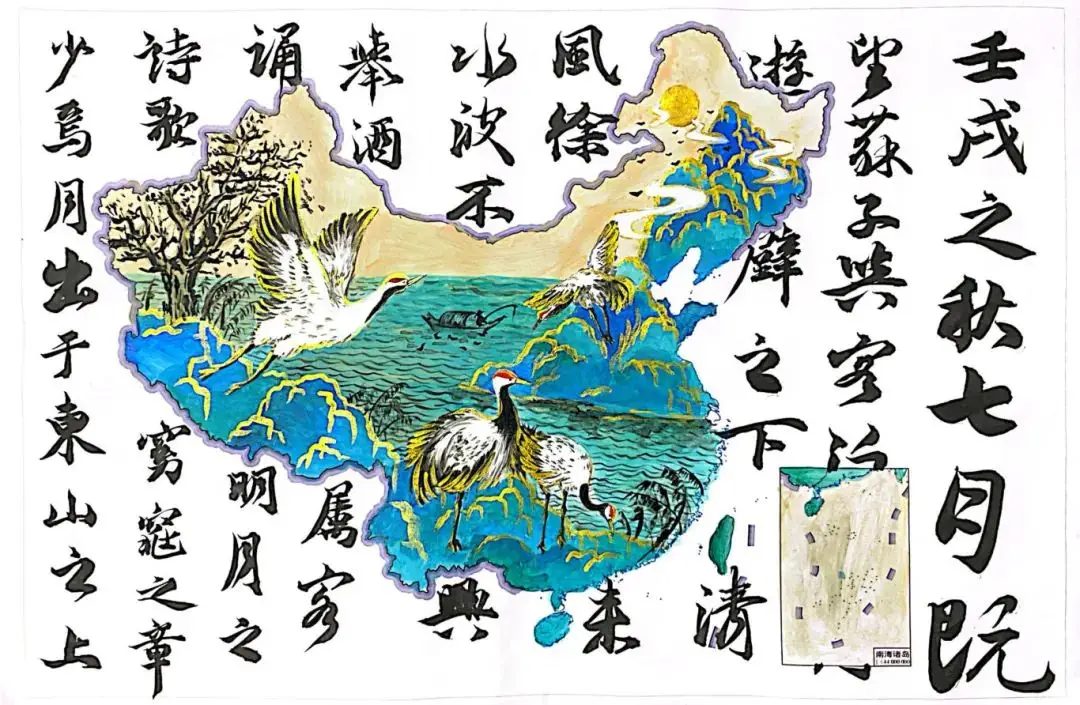 壬戌之秋七月既
望蘇子與客
遊壁之下清
風徐来
水波不興
舉酒属客
誦明月之
詩歌窈窕之章
少焉月出于東山之上
南海诸岛
1:44 000 000